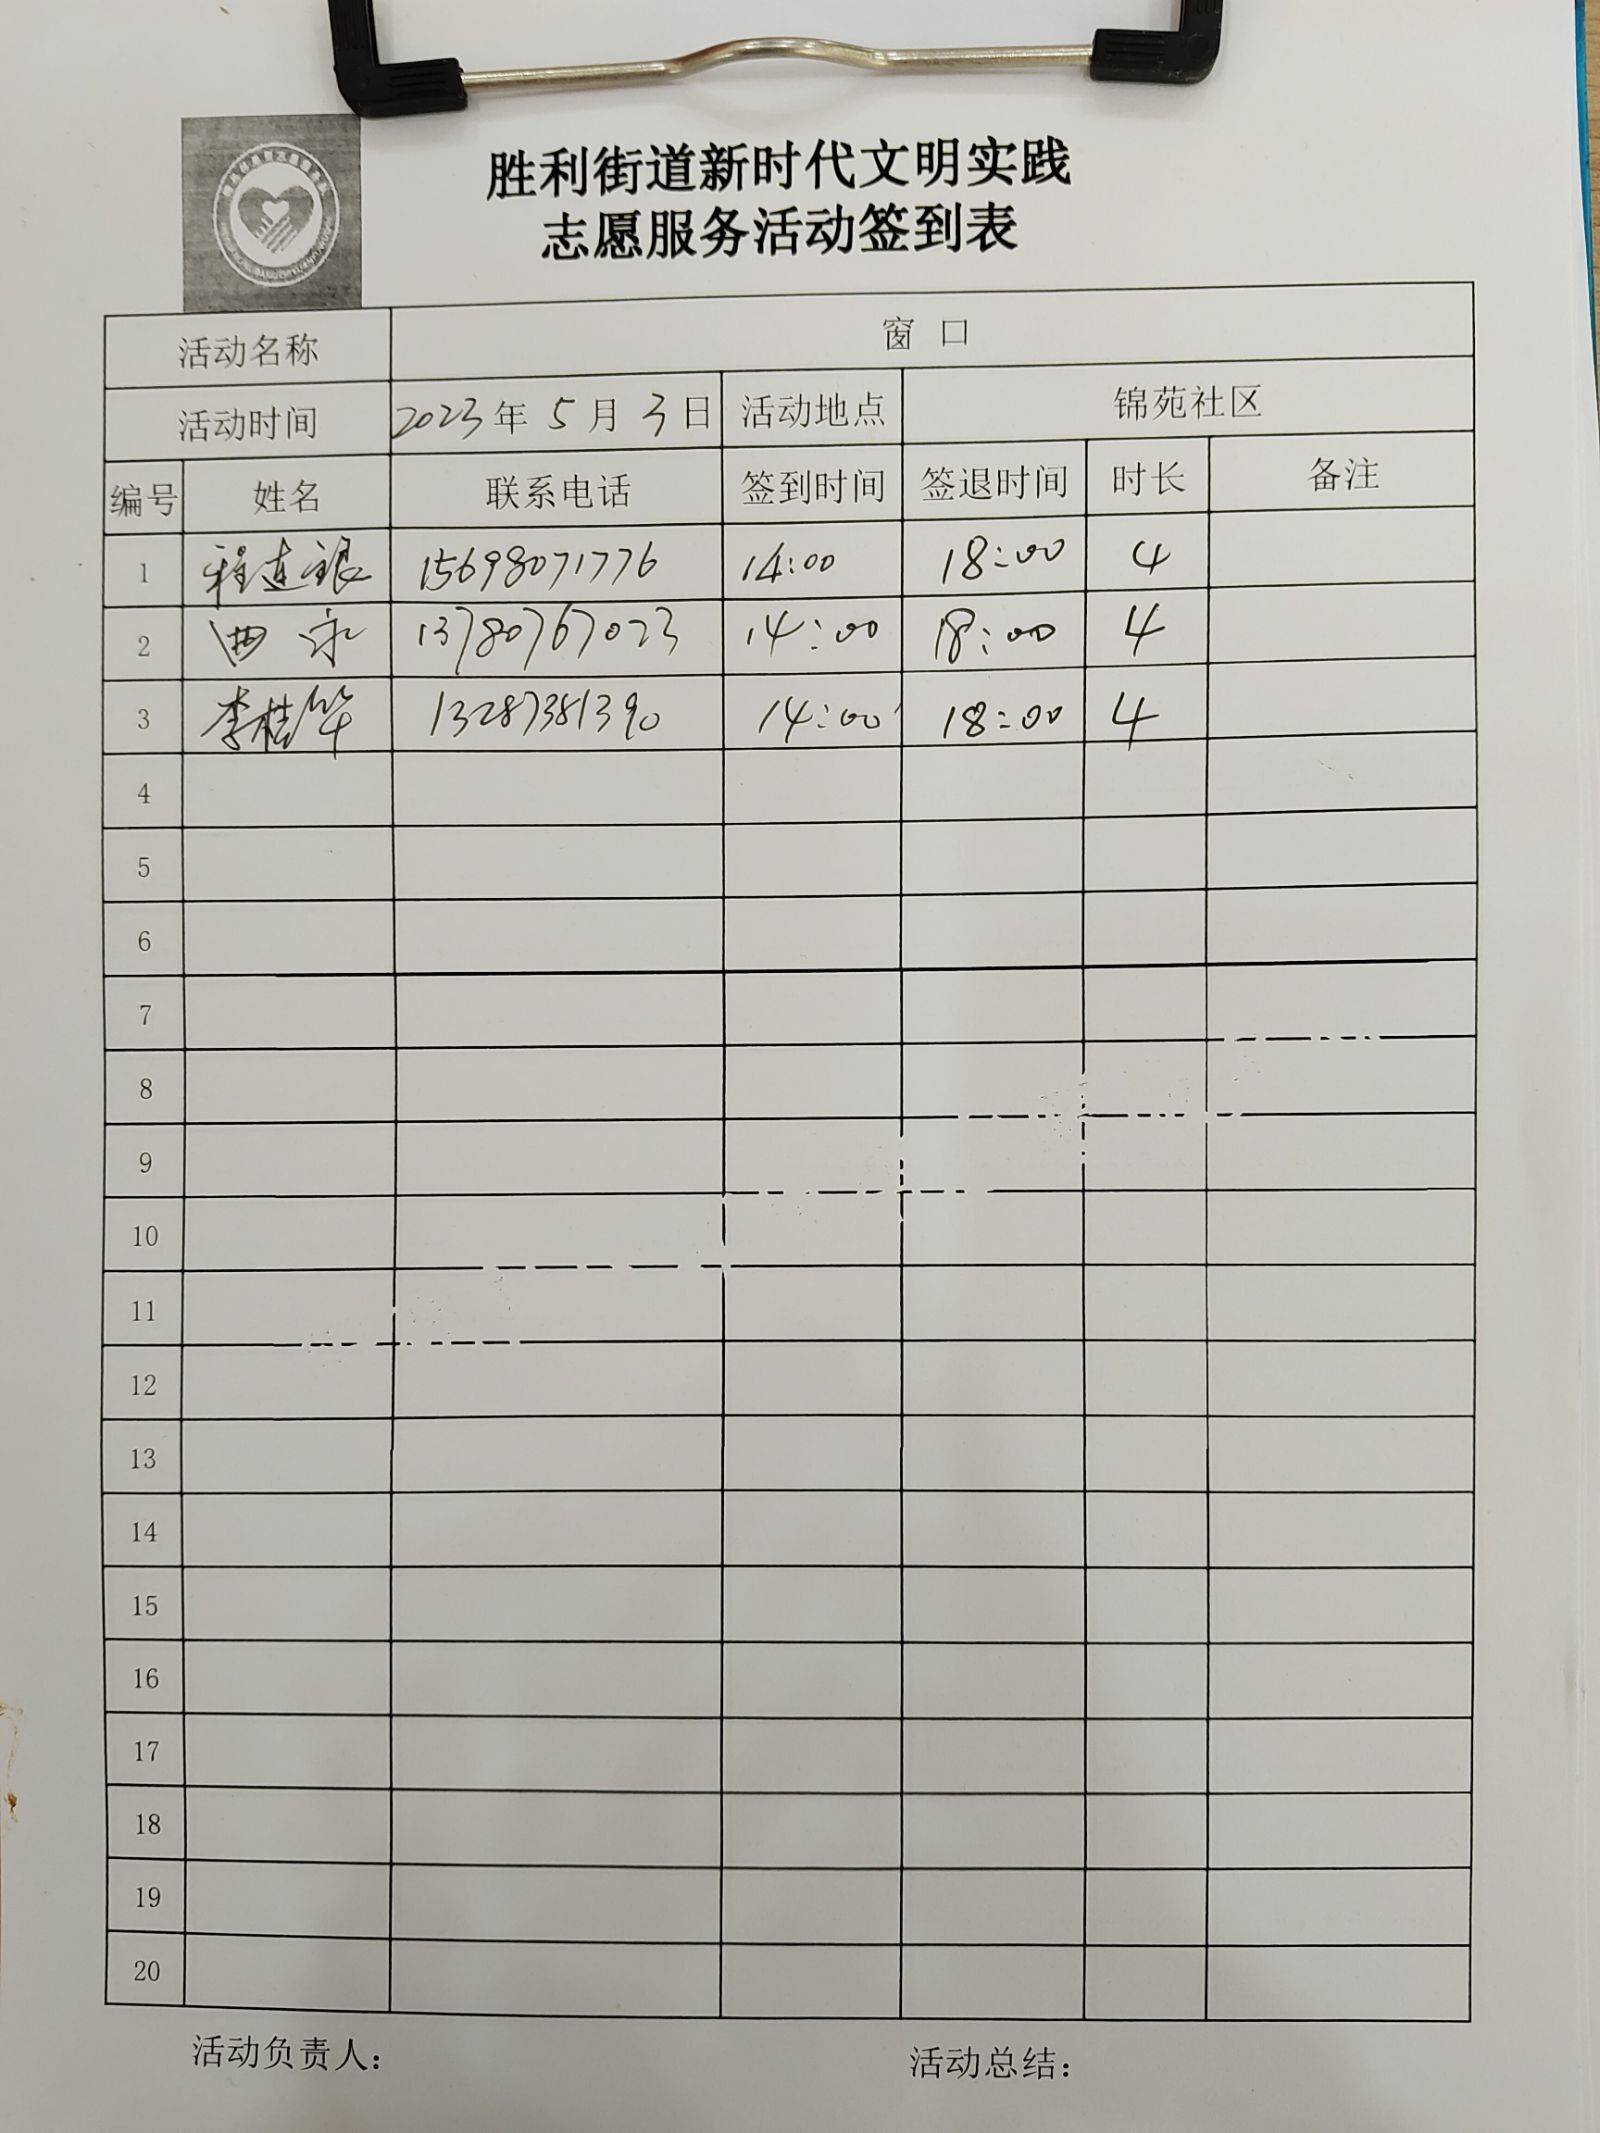 胜利街道新时代文明实践
志愿服务活动签到表
活动名称 窗口
活动时间 2023年5月3日 活动地点 锦苑社区
编号 姓名 联系电话 签到时间 签退时间 时长 备注
1 程连银 15698071776 14:00 18:00 4
2 13780767023 14:00 18:00 4
3 李桂华 13287381390 14:00 18:00 4
4
5
6
7
8
9
10
11
12
13
14
15
16
17
18
19
20
活动负责人: 活动总结: